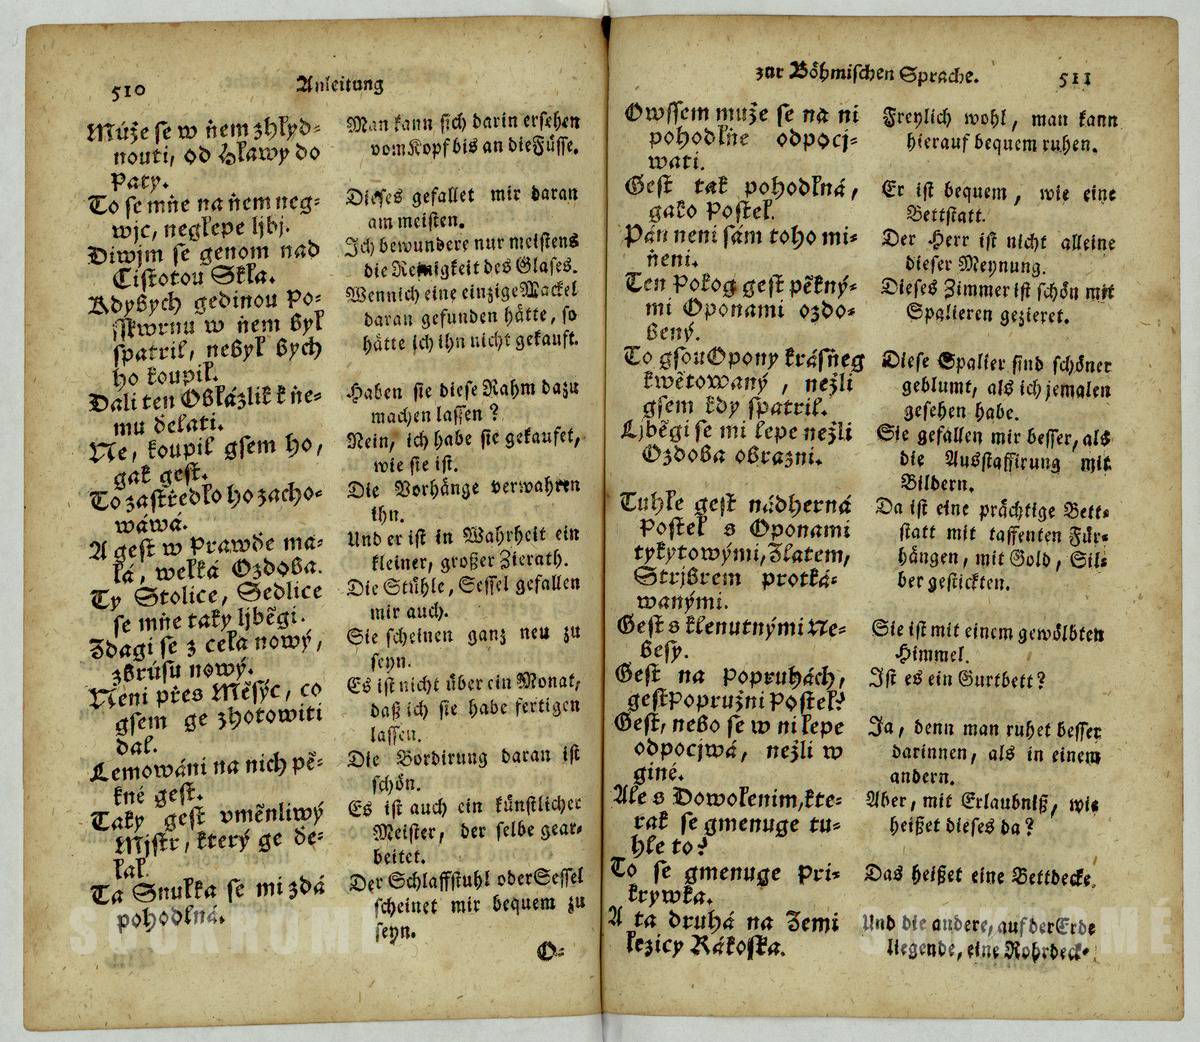 510 Anleitung
Může se w ňem zhlýd⸗
nouti, od Hławy do
Paty.
To se mňe na ňem neg⸗
wjc, neglepe ljbj.
Diwjm se genom nad
Cistotou Skła.
Kdybych gedinou Po⸗
sskwrnu w ňem był
spatril, nebył bych
ho koupil.
Dali ten Obkázlik k ňe⸗
mu delati.
Ne, koupil gsem ho,
gak gest.
To zastředło ho zacho⸗
wáwá.
A gest w prawďe ma⸗
łá, wełká Ozdoba.
Ty Stolice, Sedlice
se mňe taky ljběgi.
Zdagi se z ceła nowý,
zbrúsu nowý.
Neni přes Měsýc, co
gsem ge zhotowiti
dal.
Lemowáni na nich pě⸗
kné gest.
Taky gest vměnliwý
Mjstr, který ge ďe⸗
łal.
Ta Snułka se mi zdá
pohodlná.
Man kann sich darin ersehen
vom Kopf bis an die Füsse.
Dieses gefallet mir daran
am meisten.
Ich bewundere nur meistens
die Reinigkeit des Glases.
Wenn ich eine einzige Mackel
daran gefunden hätte, so
hätte ich ihn nicht gekauft.
Haben sie diese Rahm dazu
machen lassen?
Nein, ich habe sie gekaufet,
wie sie ist.
Die Vorhänge verwahren
ihn.
Und er ist in Wahrheit ein
kleiner, großer Zierath.
Die Stühle, Sessel gefallen
mir auch.
Sie scheinen ganz neu zu
seyn.
Es ist nicht über ein Monat,
daß ich sie habe fertigen
lassen.
Die Bordirung daran ist
schön.
Es ist auch ein künstlicher
Meister, der selbe gear⸗
beitet.
Der Schlaffstuhl oder Sessel
scheinet mir bequem zu
seyn.
O⸗
zur Böhmischen Sprache. 511
Owssem muže se na ni
pohodlňe odpocj⸗
wati.
Gest tak pohodlná,
gako Postel.
Pán neni sám toho mi⸗
ňeni.
Ten Pokog gest pěkný⸗
mi Oponami ozdo⸗
bený.
To gsou Opony krásňeg
kwětowaný, nežli
gsem kdy spatril.
Ljběgi se mi lepe nežli
Ozdoba obrazni.
Tuhle gest nádherná
Postel s Oponami
tykytowými, Zlatem,
Strjbrem protká⸗
wanými.
Gest s klenutnými Ne⸗
besy.
Gest na popruhách,
gest Popružni Postel?
Gest, nebo se w ni lepe
odpocjwá, nežli w
giné.
Ale s Dowolenim, kte⸗
rak se gmenuge tu⸗
hle to?
To se gmenuge Pri⸗
krywka.
A ta druhá na Zemi
lezicy Rákoska.
Freylich wohl, man kann
hierauf bequem ruhen.
Er ist bequem, wie eine
Bettstatt.
Der Herr ist nicht alleine
dieser Meynung.
Dieses Zimmer ist schön mit
Spalieren gezieret.
Diese Spalier sind schöner
geblumt, als ich jemalen
gesehen habe.
Sie gefallen mir besser, als
die Ausstaffirung mit
Bildern.
Da ist eine prächtige Bett⸗
statt mit taffenten Für⸗
hängen, mit Gold, Sil⸗
ber gestickten.
Sie ist mit einem gewölbten
Himmel.
Ist es ein Gurtbett?
Ja, denn man ruhet besser
darinnen, als in einem
andern.
Aber, mit Erlaubniß, wie
heißet dieses da?
Das heißet eine Bettdecke.
Und die andere, auf der Erde
liegende, eine Rohrdeck⸗